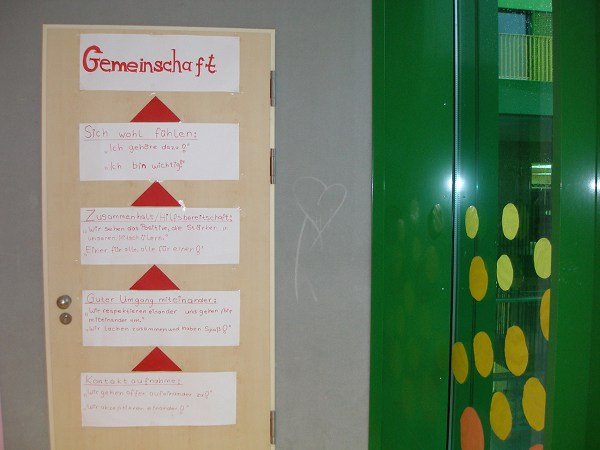 Gemeinschaft
Sich wohl fühlen:
„Ich gehöre dazu!"
„Ich bin wichtig!"
Zusammenhalt/Hilfsbereitschaft:
„Wir sehen das Positive, die Stärken in
unseren Mitschülern."
Einer für alle, alle für einen!"
Guter Umgang miteinander:
„Wir respektieren einander und gehen fair
miteinander um."
„Wir lachen zusammen und haben Spaß!"
Kontaktaufnahme:
„Wir gehen offen aufeinander zu!"
„Wir akzeptieren einander!"